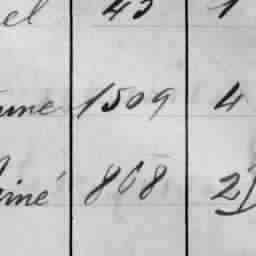 el 43 1
une 1509 4
iné 868 2